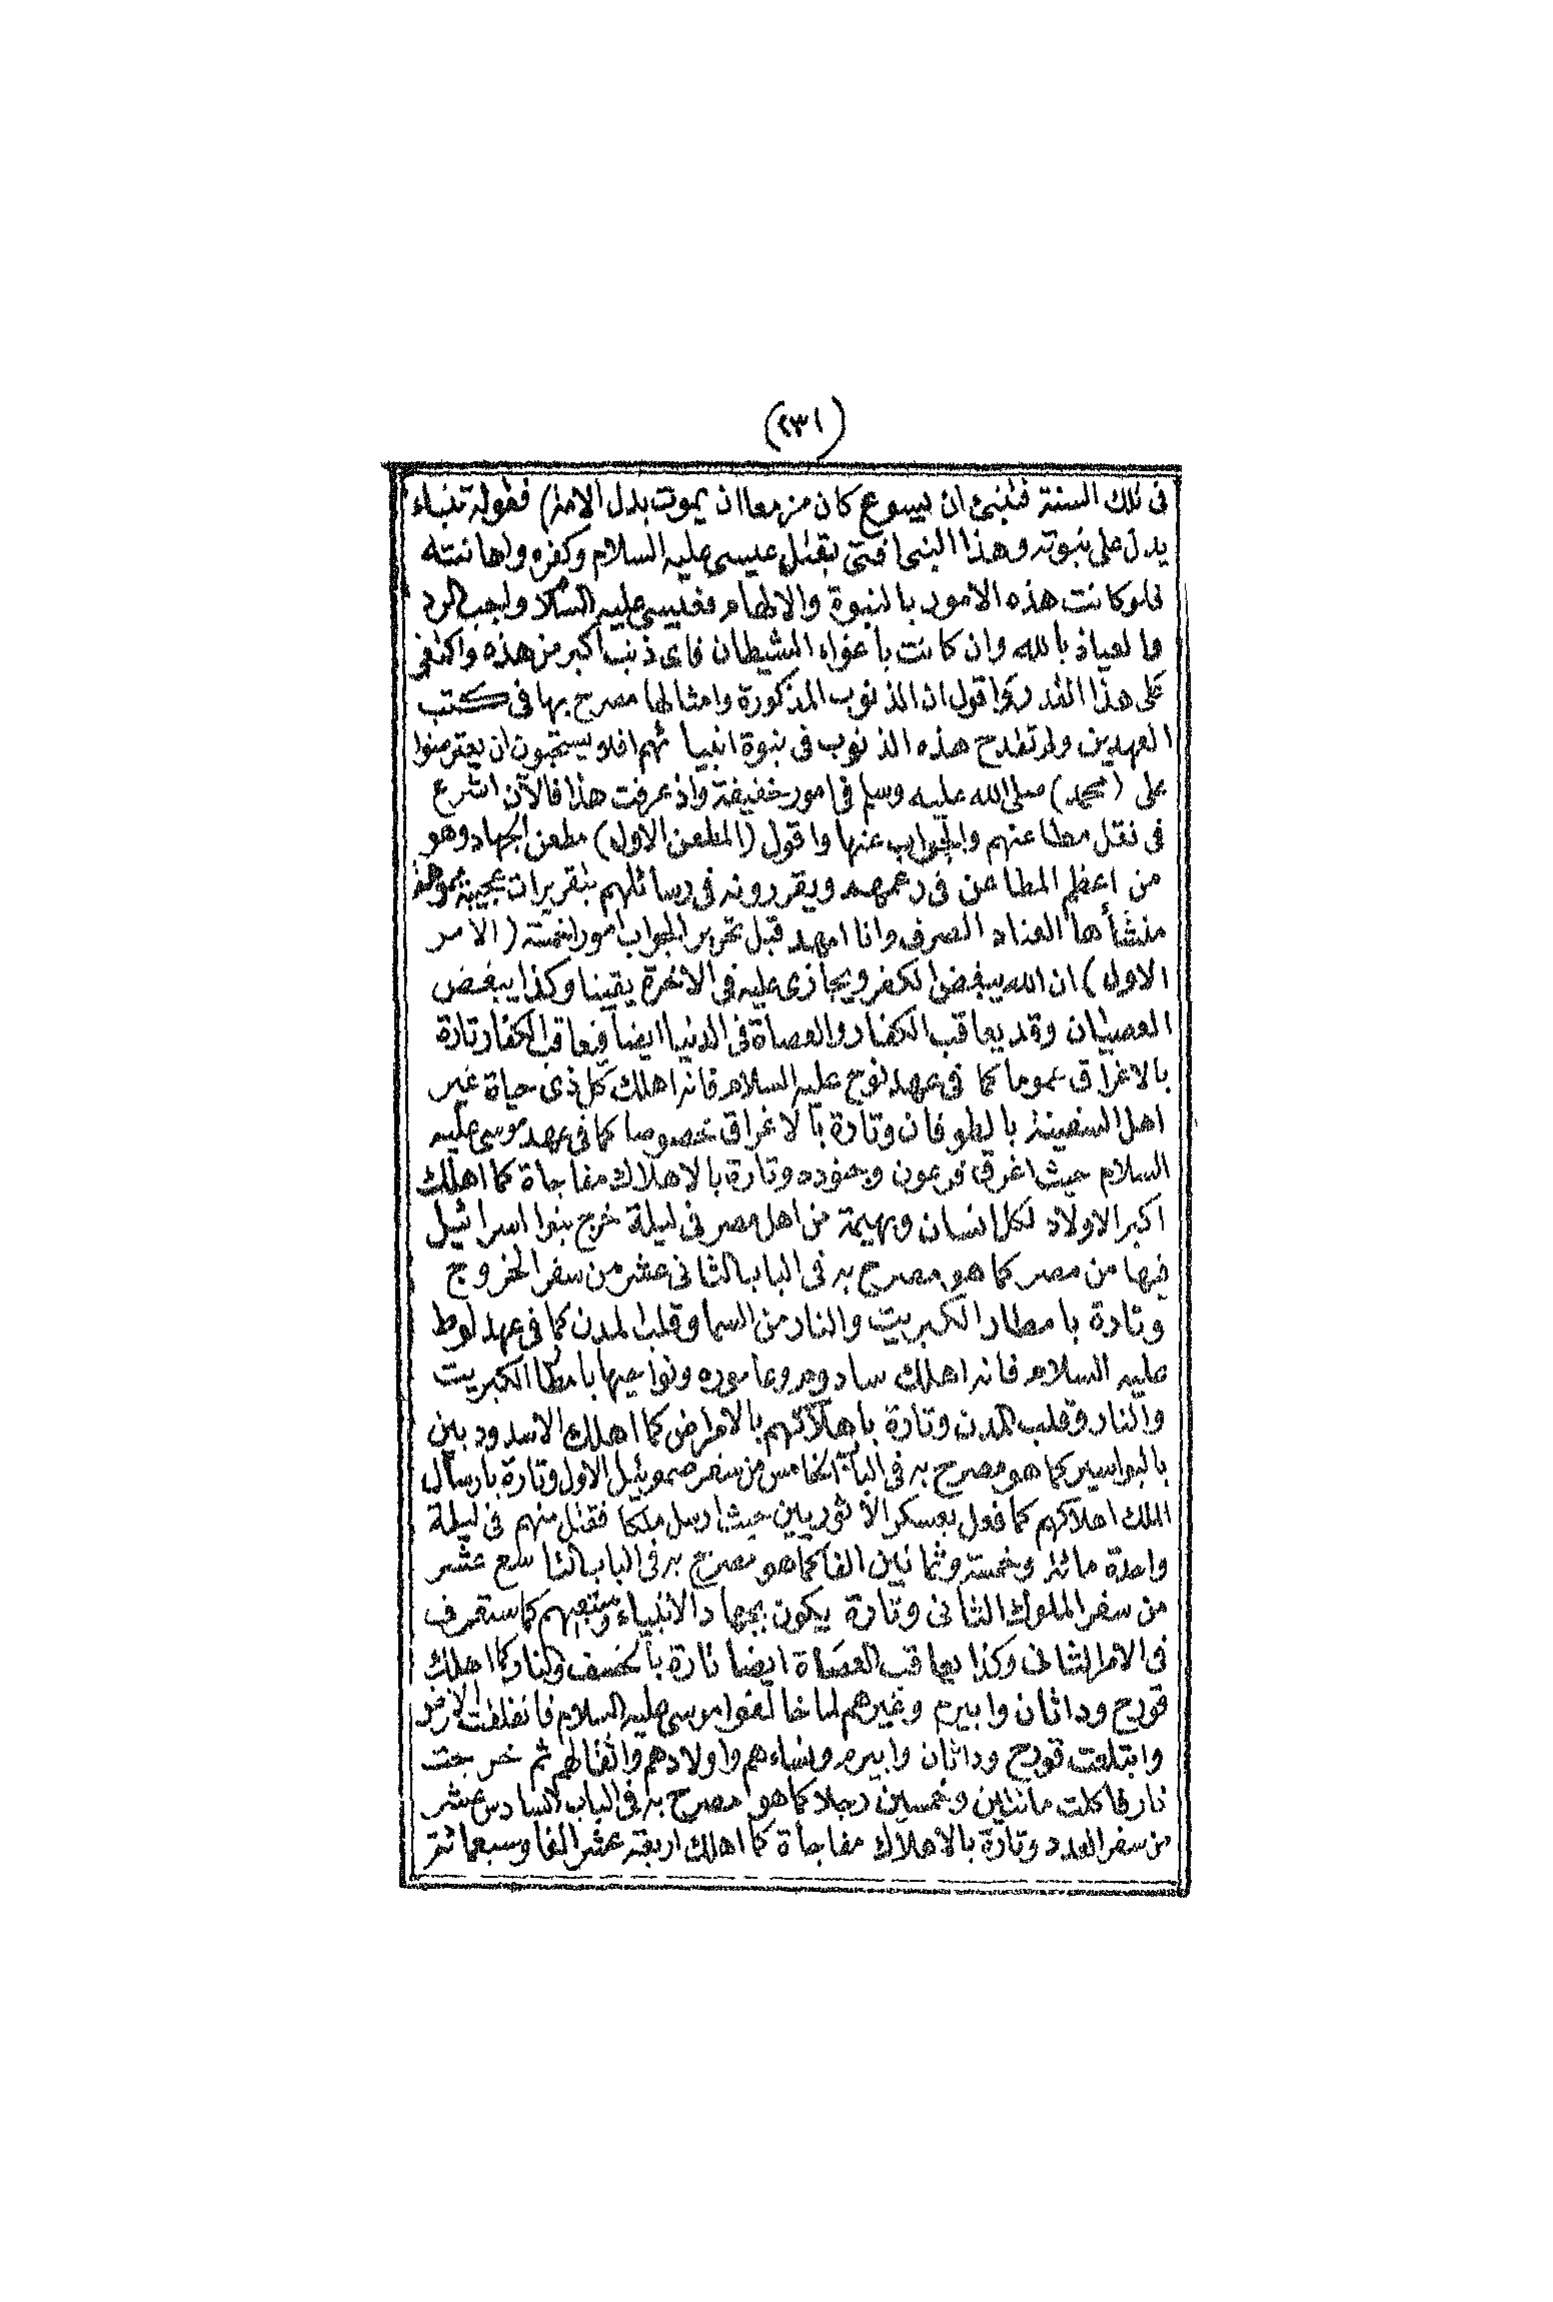 (٢٣١)
فى تلك السنة فتنبئ ان يسوع كان مزمعا ان يموت بدل الامة) فقوله تنباء
يدل على نبوته وهذا النبى افتى بقتل عيسى عليه السلام وكفره واهانته
فلو كانت هذه الامور بالنبوة والالهام فعيسى عليه السلام واجب الرد
والعياذ بالله وان كانت باغواء الشيطان فاى ذنب اكبر من هذه واكتفى
على هذا القدر واقول ان الذنوب المذكورة وامثالها مصرح بها فى كتب
العهدين ولم تقدح هذه الذنوب فى نبوة انبيائهم افلا يستحيون ان يعترضوا
على (محمد) صلى الله عليه وسلم فى امور خفيفة واذ عرفت هذا فالآن اشرع
فى نقل مطاعنهم والجواب عنها واقول (المطعن الاول) مطعن الجهاد وهو
من اعظم المطاعن فى زعمهم ويقررونه فى رسائلهم بتقريرات عجيبة مموهة
منشأها العناد الصرف وانا امهد قبل تحرير الجواب امورا خمسة (الامر
الاول) ان الله يبغض الكفر ويجازى عليه فى الآخرة يقينا وكذا يبغض
العصيان وقد يعاقب الكفار والعصاة فى الدنيا ايضا فيعاقب الكفار تارة
بالاغراق عموما كما فى عهد نوح عليه السلام فانه اهلك كل ذى حياة غير
اهل السفينة بالطوفان وتارة بالاغراق خصوصا كما فى عهد موسى عليه
السلام حيث اغرق فرعون وجنوده وتارة بالاهلاك مفاجاة كما اهلك
اكبر الاولاد لكل انسان وبهيمة من اهل مصر فى ليلة خرج بنوا اسرائيل
فيها من مصر كما هو مصرح به فى الباب الثانى عشر من سفر الخروج
وتارة بامطار الكبريت والنار من السما وقلب المدن كما فى عهد لوط
عليه السلام فانه اهلك سادوم وعاموره ونواحيها بامطار الكبريت
والنار وقلب المدن وتارة باهلاكهم بالامراض كما اهلك الاسدوديين
بالبواسير كما هو مصرح به فى الباب الخامس من سفر صموئيل الاول وتارة بارسال
الملك اهلاكهم كما فعل بعسكر الاثوريين حيث ارسل ملكا فقتل منهم فى ليلة
واحدة مائة وخمسة وثمانين الفا كما هو مصرح به فى الباب التاسع عشر
من سفر الملوك الثانى وتارة يكون بجهاد الانبياء ومتبعيهم كما ستعرف
فى الامر الثانى وكذا يعاقب العصاة ايضا تارة بالخسف والنار كما اهلك
قورح وداثان وابيرم وغيرهم لما خالفوا موسى عليه السلام فانفلقت الارض
وابتلعت قورح وداثان وابيرم ونساءهم واولادهم واثقالهم ثم خرجت
نار فاكلت مائتين وخمسين رجلا كما هو مصرح به فى الباب السادس عشر
من سفر العدد وتارة بالاهلاك مفاجأة كما اهلك اربعة عشر الفا وسبعمائة